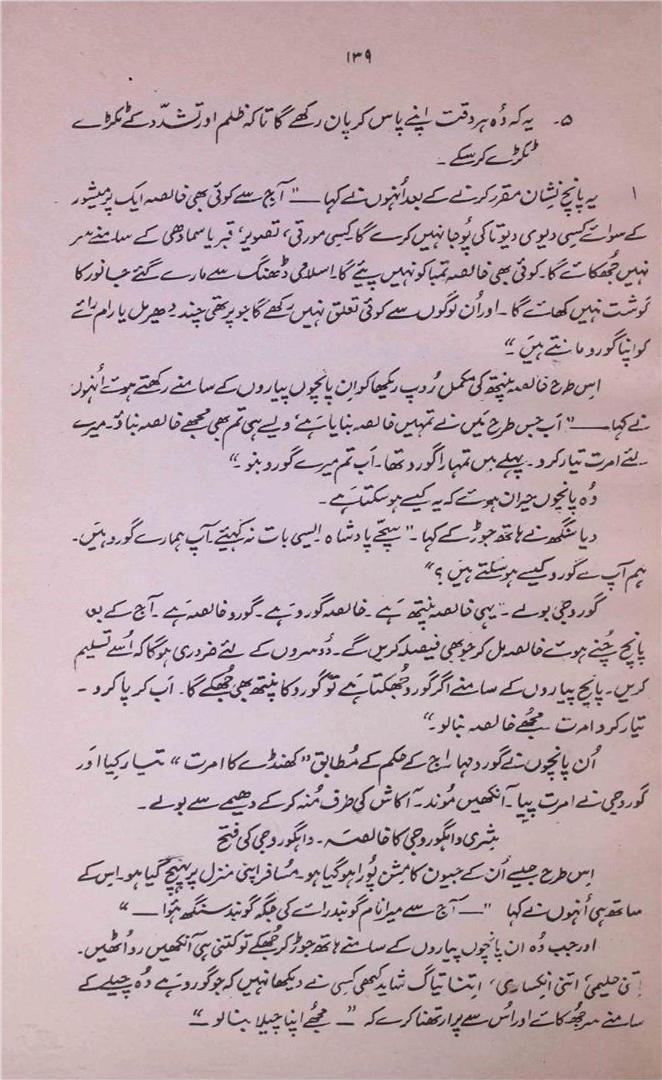 ۱۳۹
۵۔ یہ کہ وُہ ہر وقت اپنے پاس کرپان رکھے گا تاکہ ظلم اور تشدّد کے ٹکڑے
ٹکڑے کر سکے۔
۱ یہ پانچ نشان مقرر کرنے کے بعد اُنہوں نے کہا ـــ "آج سے کوئی بھی خالصہ ایک پرمیشور
کے سوائے کسی دیوی دیوتا کی پُوجا نہیں کرے گا کسی مورتی، تصویر، قبر یا سمادھی کے سامنے سر
نہیں جُھکائے گا۔ کوئی بھی خالصہ تمباکو نہیں پئیے گا۔ اسلامی ڈھنگ سے مارے گئے جانور کا
گوشت نہیں کھائے گا۔ اور اُن لوگوں سے کوئی تعلق نہیں رکھے گا جو پرتھی چند دھیر مل یا رام رائے
کو اپنا گورو مانتے ہیں۔"
اس طرح خالصہ پنتھ کی مکمل رُوپ ریکھا کو ان پانچوں پیاروں کے سامنے رکھتے ہوئے اُنہوں
نے کہا ـــ "اَب جس طرح مَیں نے تمہیں خالصہ بنایا ہے، ویسے ہی تم بھی مجھے خالصہ بناؤ۔ میرے
لئے امرت تیار کرو۔ پہلے میں تمہارا گورو تھا۔ اَب تم میرے گورو بنو۔"
وُہ پانچوں حیران ہوئے کہ یہ کیسے ہو سکتا ہے۔
دیا سنگھ نے ہاتھ جوڑ کے کہا۔ "سچّے پادشاہ ایسی بات نہ کہئیے۔ آپ ہمارے گورو ہیں۔
ہم آپ کے گورو کیسے ہو سکتے ہیں؟"
گورو جی بولے۔ "یہی خالصہ پنتھ ہے۔ خالصہ گورو ہے۔ گورو خالصہ ہے۔ آج کے بعد
پانچ چُنے ہوئے خالصہ مل کر جو بھی فیصلہ کریں گے۔ دُوسروں کے لئے ضروری ہو گا کہ اُسے تسلیم
کریں۔ پانچ پیاروں کے سامنے اگر گورو جُھکتا ہے تو گورو کا پنتھ بھی جُھکے گا۔ اَب کرپا کرو۔
تیار کرو امرت مجھے خالصہ بنا لو۔"
اُن پانچوں نے گورو مہاراج کے حکم کے مُطابق "کھنڈے کا امرت" تیار کیا اَور
گورو جی نے امرت پیا۔ آنکھیں مُوند۔ آکاش کی طرف مُنہ کر کے دھیمے سے بولے۔
شری واہگورو جی کا خالصہ۔ واہگورو جی کی فتح
اس طرح جیسے اُن کے جیون کا مِشن پُورا ہو گیا ہو۔ مُسافر اپنی منزل پر پہنچ گیا ہو۔ اس کے
ساتھ ہی اُنہوں نے کہا "ـــ آج سے میرا نام گوبند رائے کی جگہ گوبند سنگھ ہُوا ـــ"
اور جب وُہ ان پانچوں پیاروں کے سامنے ہاتھ جوڑ کر جُھکے تو کتنی ہی آنکھیں رو اُٹھیں۔
اِتنی حلیمی، اتنی اِنکساری، اِتنا تیاگ شاید کبھی کسی نے دیکھا نہیں کہ جو گورو ہے وُہ چیلے کے
سامنے سر جُھکائے اور اُس سے پرارتھنا کرے کہ "ـــ مجھے اپنا چیلا بنا لو ـــ"